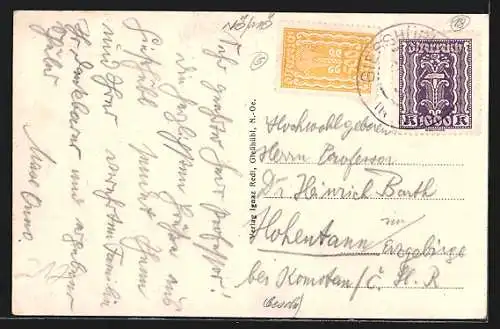 Sehr geehrter Herr Professor!
Die herzlichsten Grüße aus
Gießhübl sendet Ihnen
und Ihrer verehrten Familie
Ihr dankbarer und ergebener
Schüler
Verlag Ignaz Redl, Gießhübl, N.-Oe.
Österreich
1000
K K
GIESSHÜB
Hochwohlgeboren
Herrn Professor
Dr Heinrich Barth
in
Hohentann Erzgebirge
bei Komotau / Č. S. R